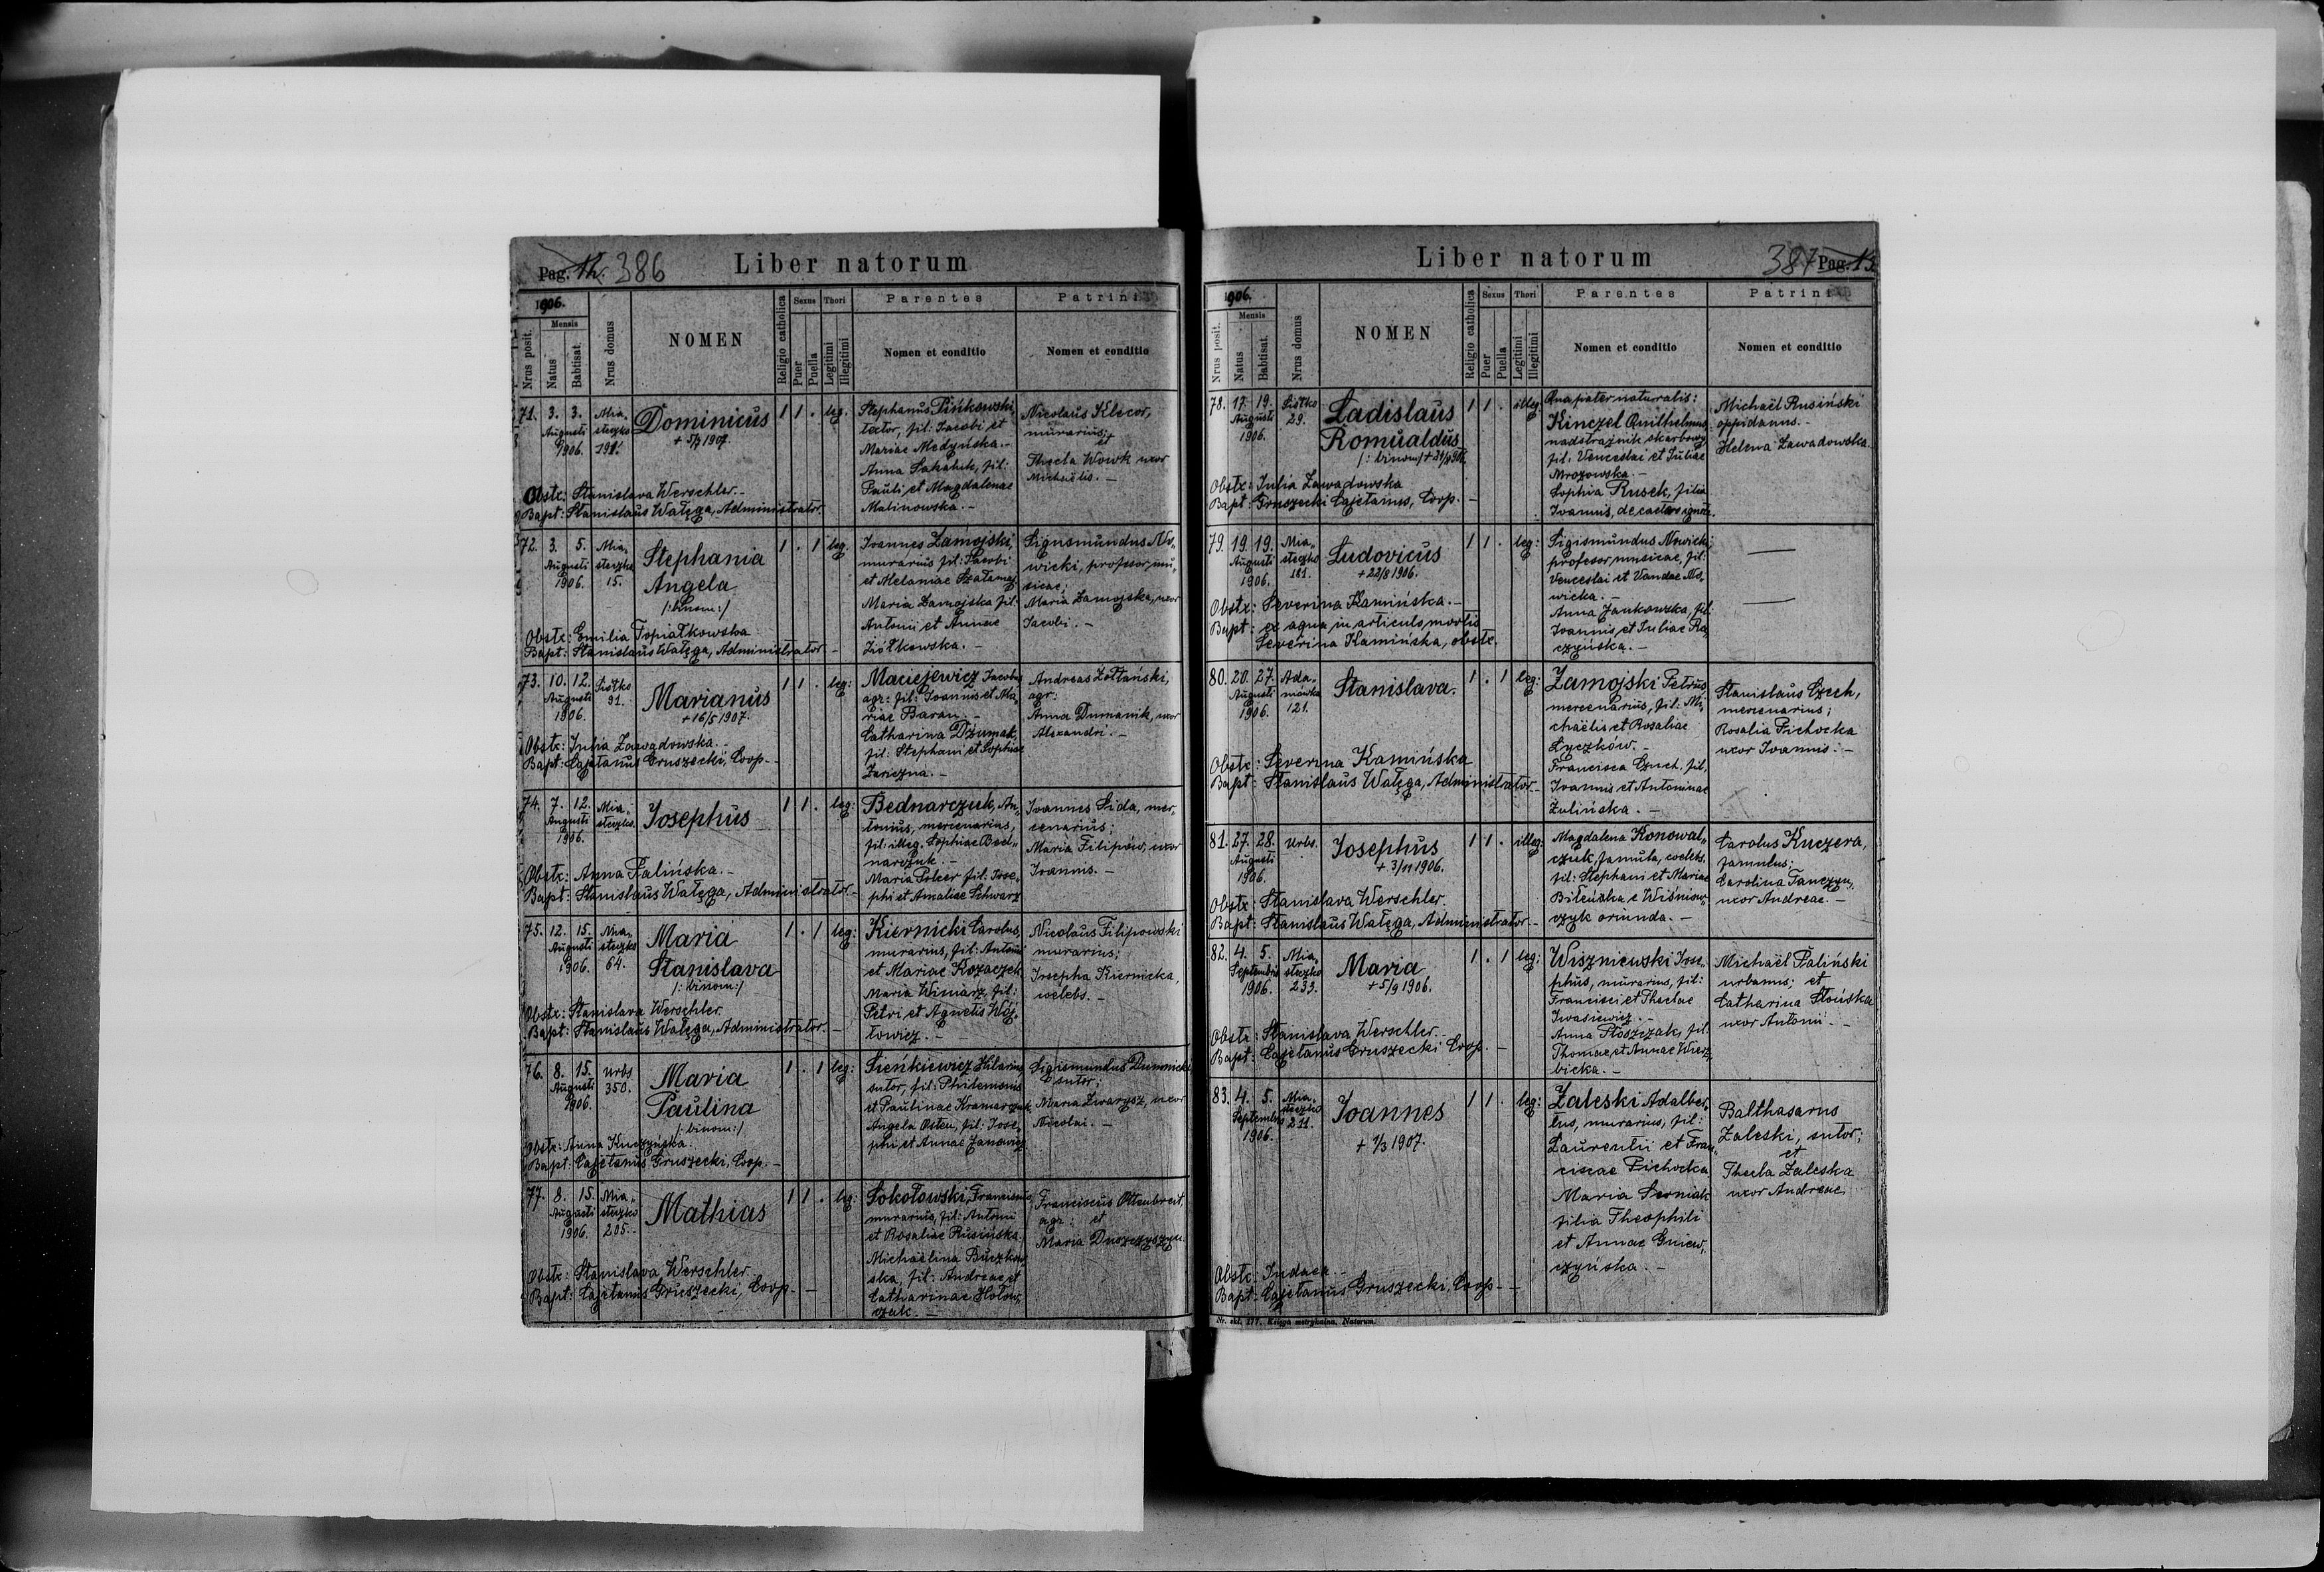 Pag. 12. 386
Liber natorum
1906.
Nrus posit.
Mensis
Natus
Babtisat.
Nrus domus
NOMEN
Religio catholica
Sexus
Puer
Puella
Thori
Legitimi
Illegitimi
Parentes
Nomen et conditio
Patrini
Nomen et conditio
71. 3. 3. Mia„
Augusti steczko
1906. 191.
Dominicus
1 1 . leg.
Stephanus Pińkowski,
tector, fil: Jacobi et
Mariae Medyńska.-
Anna Sakaluk, fil:
Pauli et Magdalenae
Malinowska.-
Nicolaus Klecor,
murarius; et
Thecla Wowk uxor
Michaëlis.-
Obstx: Stanislava Werschler.-
Bapt: Stanislaus Wałęga, Administrator.
72. 3. 5. Mia„
Augusti steczko
1906. 15.
Stephania
Angela
/:binom:/
1 . 1 leg.
Ioannes Zamojski,
murarius fil: Jacobi
et Melaniae Szałamaj
Maria Zamojska fil:
Antonii et Annae
Ziółkowska.-
Sigismundus No„
wicki, profesor mu„
sicae;
Maria Zamojska, uxor
Jacobi.-
Obstx: Emilia Topiałkowska
Bapt: Stanislaus Wałęga, Administrator.-
73. 10. 12. Siołko
Augusti 91.
1906.
Marianus
+16/5 1907.
1 1 . leg:
Maciejewicz Jacobus
agr: fil: Joannis et Ma„
riae Baran.-
Catharina Dziumak,
fil: Stephani et Sophiae
Zariczna.-
Andreas Żółtański,
agr:
Anna Dumanik, uxor
Alexandri.-
Obstx: Julia Zawadowska.-
Bapt: Cajetanus Gruszecki, Coop.-
74. 7. 12. Mia„
Augusti steczko.
1906.
Josephus
1 1 . leg:
Bednarczuk, An„
tonius, mercenarius,
fil: illeg. Sophiae Bed„
narczuk.-
Maria Polcer fil: Jose„
phi et Amaliae Schwarz
Joannes Sida, mer„
cenarius;
Maria Filipów, uxor
Joannis.-
Obstx: Anna Palińska.-
Bapt: Stanislaus Wałęga, Administrator.-
75. 12. 15. Mia„
Augusti steczko
1906. 64.
Maria
Stanislava
/:binom:/
1 . 1 leg:
Kiernicki Carolus,
murarius, fil: Antonii
et Mariae Kozaczek
Maria Winiarz, fil:
Petri et Agnetis Wój„
towicz.-
Nicolaus Filipowski
murarius;
Josepha Kiernicka,
coelebs.-
Obstx: Stanislava Werschler.
Bapt: Stanislaus Wałęga, Administrator.-
76. 8. 15. Urbs
Augusti 350.
1906.
Maria
Paulina
/:binom:/
1 . 1 leg:
Sieńkiewicz Hilarius
sutor, fil: Philemonis
et Paulinae Kramarczuk
Angela Osten, fil: Jose„
phi et Annae Janowicz
Sigismundus Dumnicki
sutor;
Maria Zwarysz, uxor
Nicolai.-
Obstx: Anna Kuczyńska.
Bapt: Cajetanus Gruszecki, Coop.-
77. 8. 15. Mia„
Augusti steczko
1906. 205.-
Mathias
1 1 . leg:
Sokołowski, Franciscus
murarius, fil: Antonii
et Rosaliae Rusińska.
Michaëlina Buczkow„
ska, fil: Andreae et
Catharinae Hołow„
czak.-
Franciscus Ottenbreit,
agr: et
Maria Duszczyszyn.
Obstx: Stanislava Werschler.
Bapt: Cajetanus Gruszecki, Coop.-
Liber natorum
387 Pag. 13
1906.
Nrus posit.
Mensis
Natus
Babtisat.
Nrus domus
NOMEN
Religio catholica
Sexus
Puer
Puella
Thori
Legitimi
Illegitimi
Parentes
Nomen et conditio
Patrini
Nomen et conditio
78. 17. 19. Siołko
Augusti 29.
1906.
Ladislaus
Romualdus
/:binom:/
1 1 . illeg.
Qua pater naturalis:
Kinczel Quilhelmus
nadstrażnik skarbowy
fil. Venceslai et Juliae
Mrozowska.-
Sophia Rusek, filia
Joannis, de caetero ignota.
Michaël Rusiński
oppidanus.-
Helena Zawadowska.
Obstx: Julia Zawadowska
Bapt: Gruszecki Cajetanus, Coop.-
79. 19. 19. Mia„
Augusti steczko
1906. 181.
Ludovicus
+22/8 1906.
1 1 . leg:
Sigismundus Nowicki
profesor musicae, fil:
Venceslai et Vandae No„
wicka.-
Anna Jankowzka, fil:
Joannis et Juliae Ra„
czyńska.-
Obstx: Severina Kamińska.-
Bapt: ex aqua in articulo mortis
Severina Kamińska, obstx.
80. 20. 27. Ada„
Augusti mówka
1906. 121.
Stanislava.
1 . 1 leg:
Zamojski Petrus
mercenarius, fil: Mi„
chaëlis et Rosaliae
Łyczków.-
Francisca Czech, fil,
Joannis et Antoninae
Zulińska.-
Stanislaus Czech,
mercenarius;
Rosalia Pichocka
uxor Joannis.-
Obstx: Severina Kamińska
Bapt: Stanislaus Wałęga, Administrator.-
81. 27. 28. Urbs.
Augusti
1906.
Josephus
+3/11 1906.
1 1 . illeg:
Magdalena Konowal„
czuk, famula, coelebs.
fil: Stephani et Mariae
Biłeńska e Wiśniow„
czyk oriunda.-
Carolus Kuczera,
famulus;
Carolina Fanczyn,
uxor Andreae.-
Obstx: Stanislava Werschler.
Bapt: Stanislaus Wałęga, Administrator.-
82. 4. 5. Mia„
Septembris steczko
1906. 233.
Maria
+5/9 1906.
1 . 1 leg:
Wiszniewski Jose„
phus, murarius, fil:
Francisci et Theclae
Iwasiewicz.-
Anna Płoszczak, fil.
Thomae et Annae Wierz„
bicka.-
Michaël Paliński
urbanus; et
Catharina Słońska
uxor Antonii.-
Obstx: Stanislava Werschler.-
Bapt: Cajetanus Gruszecki Coop.-
83. 4. 5. Mia„
Septembris steczko
1906. 211.
Joannes
+ 1/3 1907.
1 1 . leg:
Zaleski Adalber„
tus, murarius, fil:
Laurentii et Fran„
ciscae Pichocka
Maria Serniak
filia Theophili
et Annae Gniew„
czyńska.-
Balthasarus
Zaleski, sutor;
et
Thecla Zaleska
uxor Andreae.
Obstx: Judaea.-
Bapt: Cajetanus Gruszecki, Coop.-
Nr. skł. 177. Księga metrykalna. Natorum.